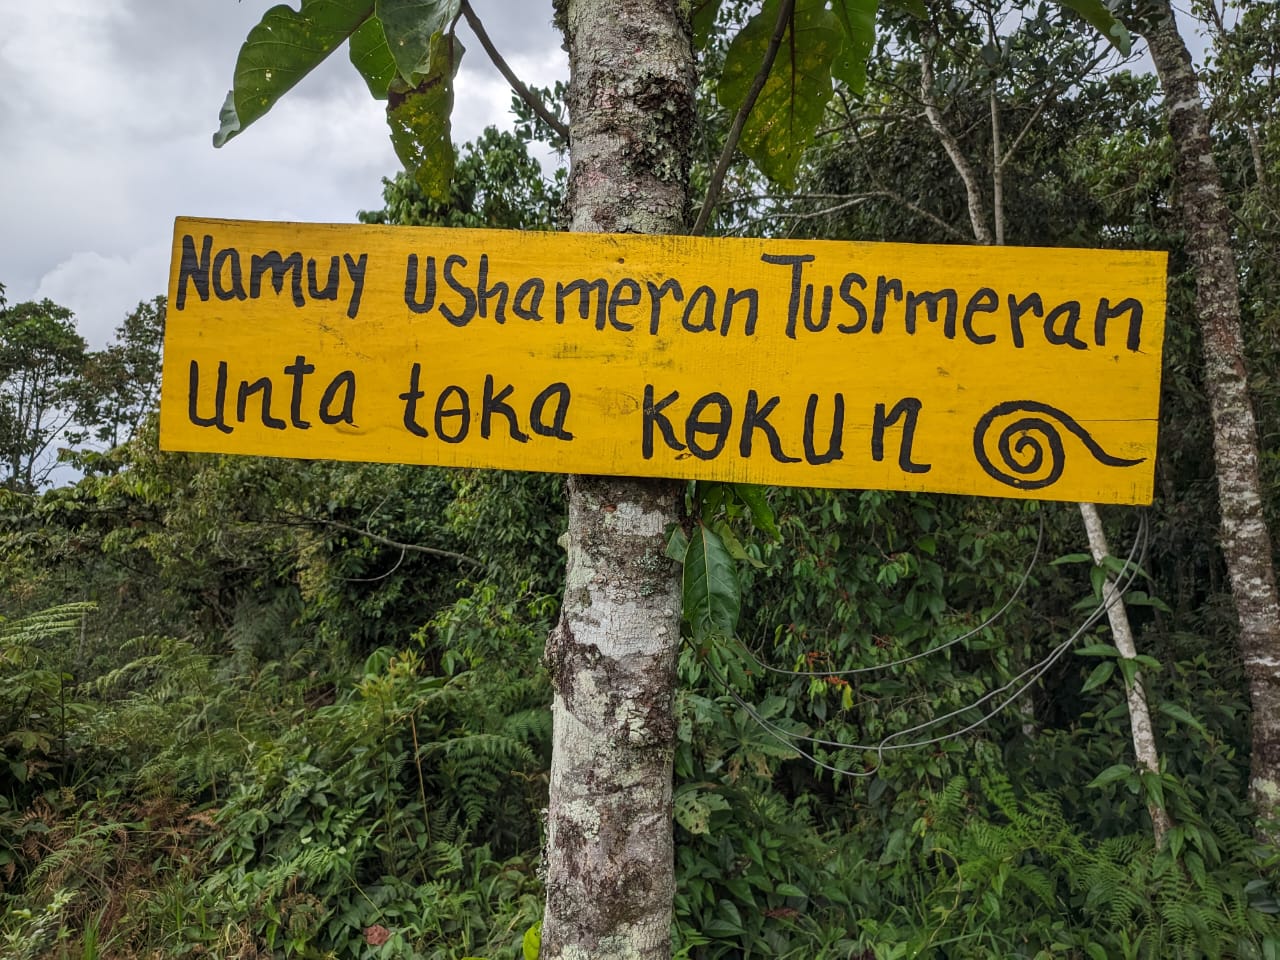 Namuy Ushameran Tusrmeran
Unta tɵka kɵkun